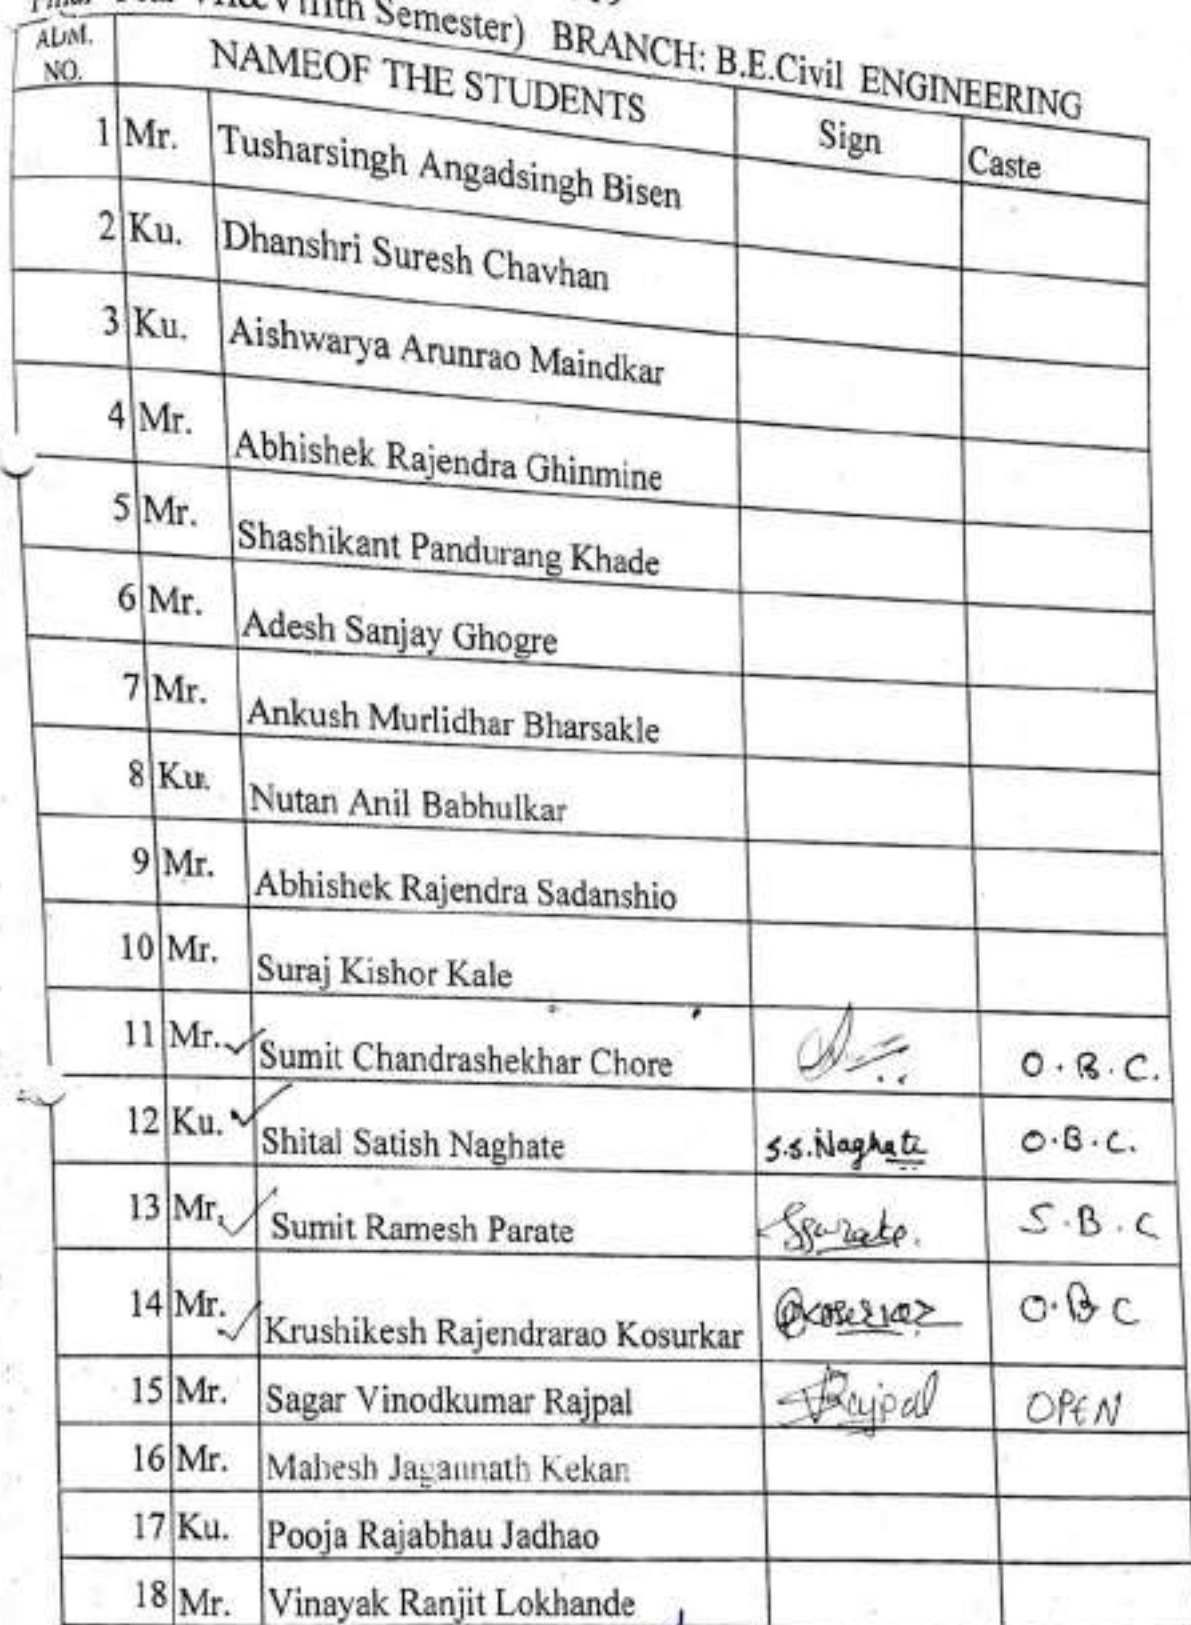 Semester) BRANCH: B.E.Civil ENGINEERING
ADM. NO. NAMEOF THE STUDENTS Sign Caste
1 Mr. Tusharsingh Angadsingh Bisen
2 Ku. Dhanshri Suresh Chavhan
3 Ku. Aishwarya Arunrao Maindkar
4 Mr. Abhishek Rajendra Ghinmine
5 Mr. Shashikant Pandurang Khade
6 Mr. Adesh Sanjay Ghogre
7 Mr. Ankush Murlidhar Bharsakle
8 Ku. Nutan Anil Babhulkar
9 Mr. Abhishek Rajendra Sadanshio
10 Mr. Suraj Kishor Kale
11 Mr. Sumit Chandrashekhar Chore O.B.C.
12 Ku. Shital Satish Naghate S.S.Naghate O.B.C.
13 Mr. Sumit Ramesh Parate S.B.C
14 Mr. Krushikesh Rajendrarao Kosurkar O.B C
15 Mr. Sagar Vinodkumar Rajpal Rajpal OPEN
16 Mr. Mahesh Jagannath Kekan
17 Ku. Pooja Rajabhau Jadhao
18 Mr. Vinayak Ranjit Lokhande